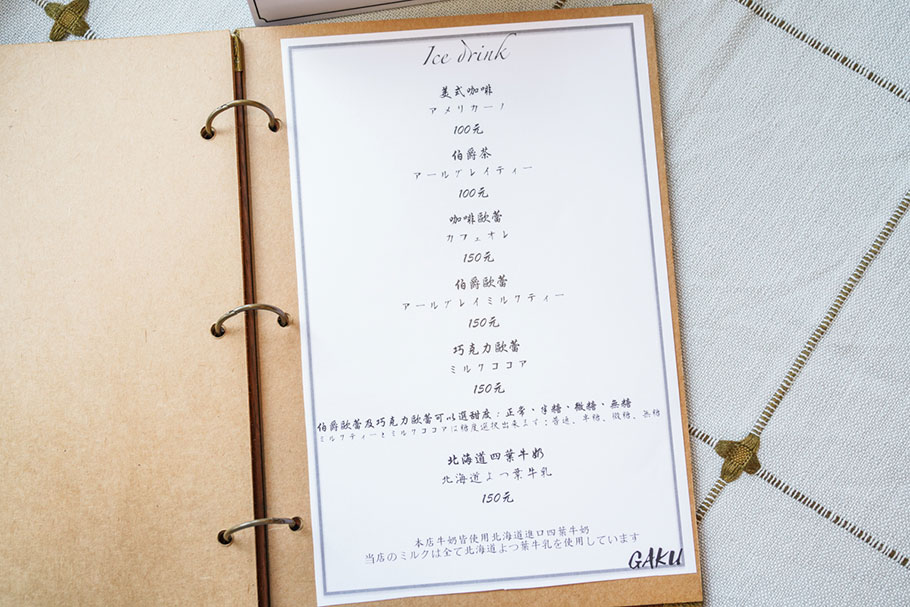 Ice drink
美式咖啡
アメリカーノ
100元
伯爵茶
アールグレイティー
100元
咖啡歐蕾
カフェオレ
150元
伯爵歐蕾
アールグレイミルクティー
150元
巧克力歐蕾
ミルクココア
150元
伯爵歐蕾及巧克力歐蕾可以選甜度：正常、半糖、微糖、無糖
ミルクティーとミルクココアは糖度選択出来ます：普通、半糖、微糖、無糖
北海道四葉牛奶
北海道よつ葉牛乳
150元
本店牛奶皆使用北海道進口四葉牛奶
当店のミルクは全て北海道よつ葉牛乳を使用しています
GAKU